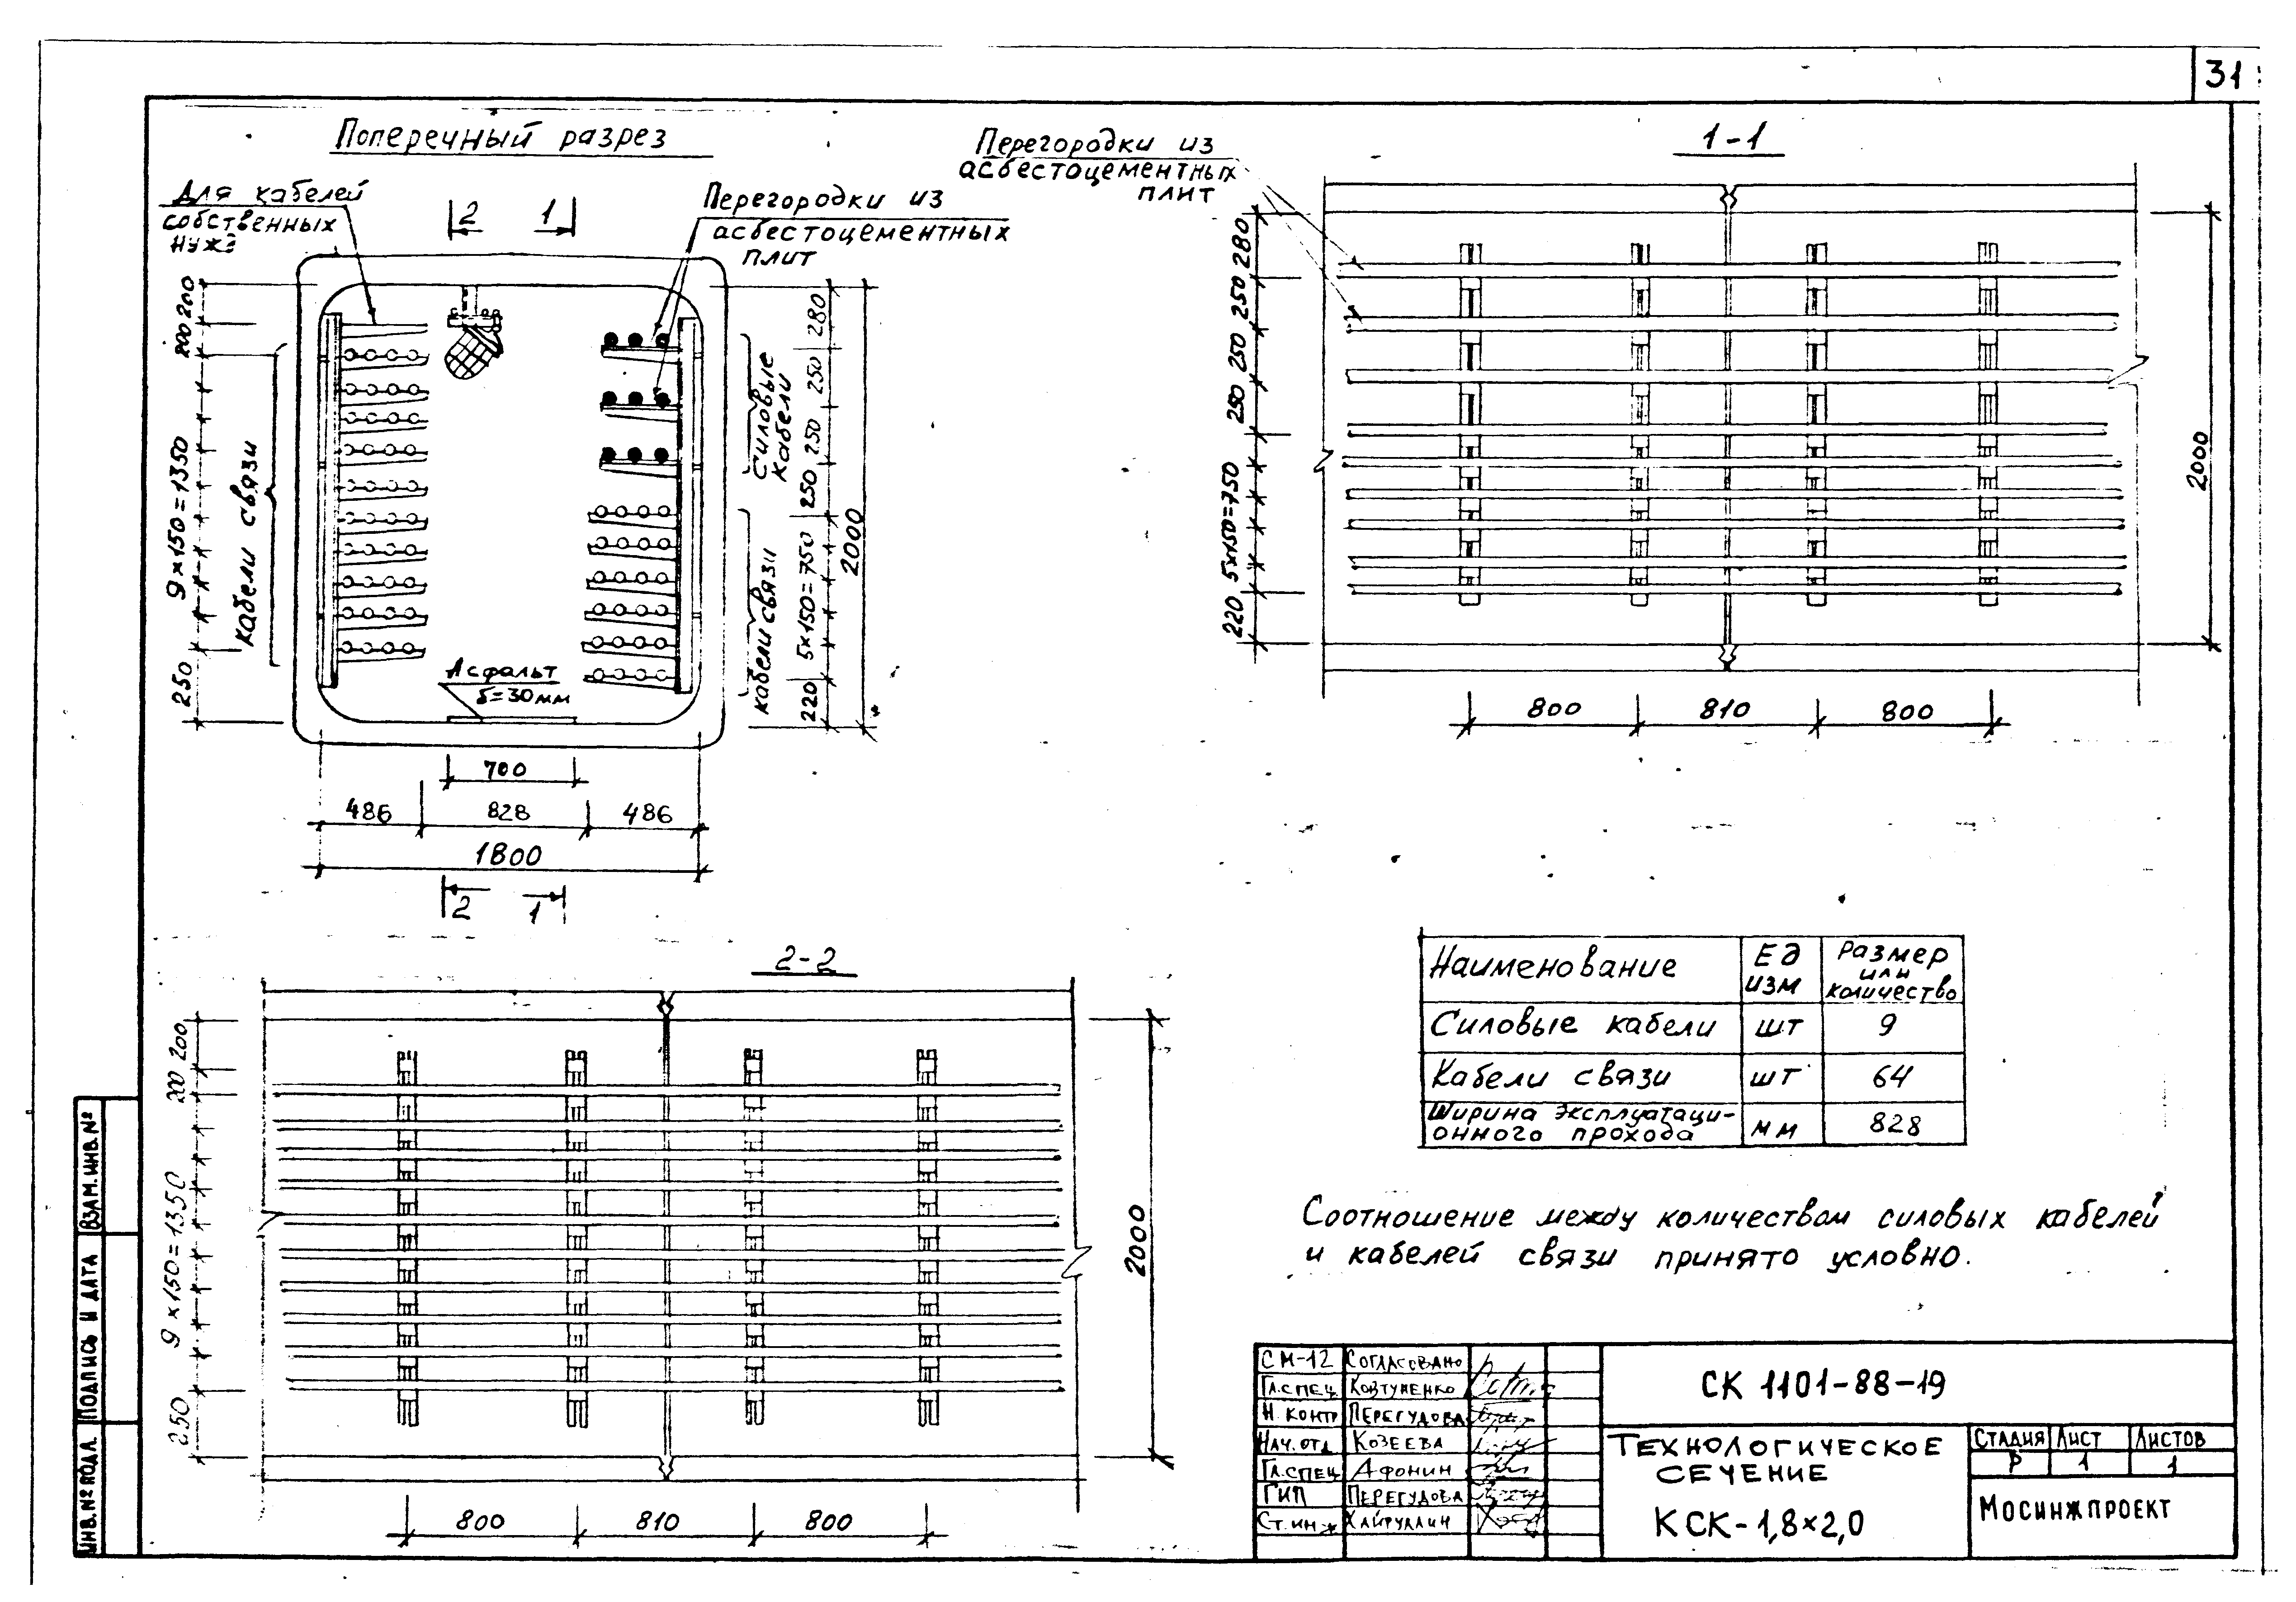 31
Поперечный разрез
Для кабелей
собственных
нужд
2 1
Перегородки из
асбестоцементных
плит
200
200
9×150=1350
250
кабели связи
280
250
250
250
5×150=750
220
2000
Силовые
кабели
кабели связи
Асфальт
δ=30мм
700
486 828 486
1800
2 1
1-1
Перегородки из
асбестоцементных
плит
280
250
250
250
5×150=750
220
2000
800 810 800
2-2
200
200
9×150=1350
250
2000
800 810 800
Наименование Ед изм Размер или количество
Силовые кабели шт 9
Кабели связи шт 64
Ширина эксплуатаци-
онного прохода мм 828
Соотношение между количеством силовых кабелей
и кабелей связи принято условно.
СМ-12 Согласовано
Гл.спец Ковтуненко
Н. контр Перегудова
Нач.отд Козеева
Гл.спец Афонин
ГИП Перегудова
Ст.инж Хайруллин
СК 1101-88-19
Технологическое
сечение
КСК-1,8×2,0
Стадия Лист Листов
Р 1 1
Мосинжпроект
Взам.инв.№
Подпись и дата
Инв.№ подл.